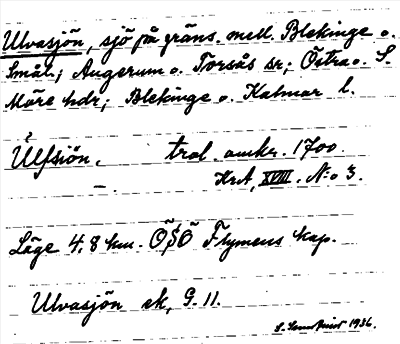 Ulvasjön, sjö på gräns. mell. Blekinge o.
Smål.; Augerum o. Torsås sr; Östra o. S.
Möre hdr; Blekinge o. Kalmar l.
Ulfsiön. trol. omkr. 1700.
Krt, XVIII. No 3.
Läge 4,8 km. ÖSÖ Flymens kap.
Ulvasjön ek, G. 11.
1936.